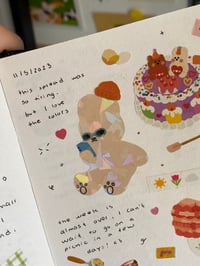 11/5/2023
this spread was
so tiring.
but I love
the colors
the week is
almost over. I can't
wait to go on a
picnic in a few
days! <3